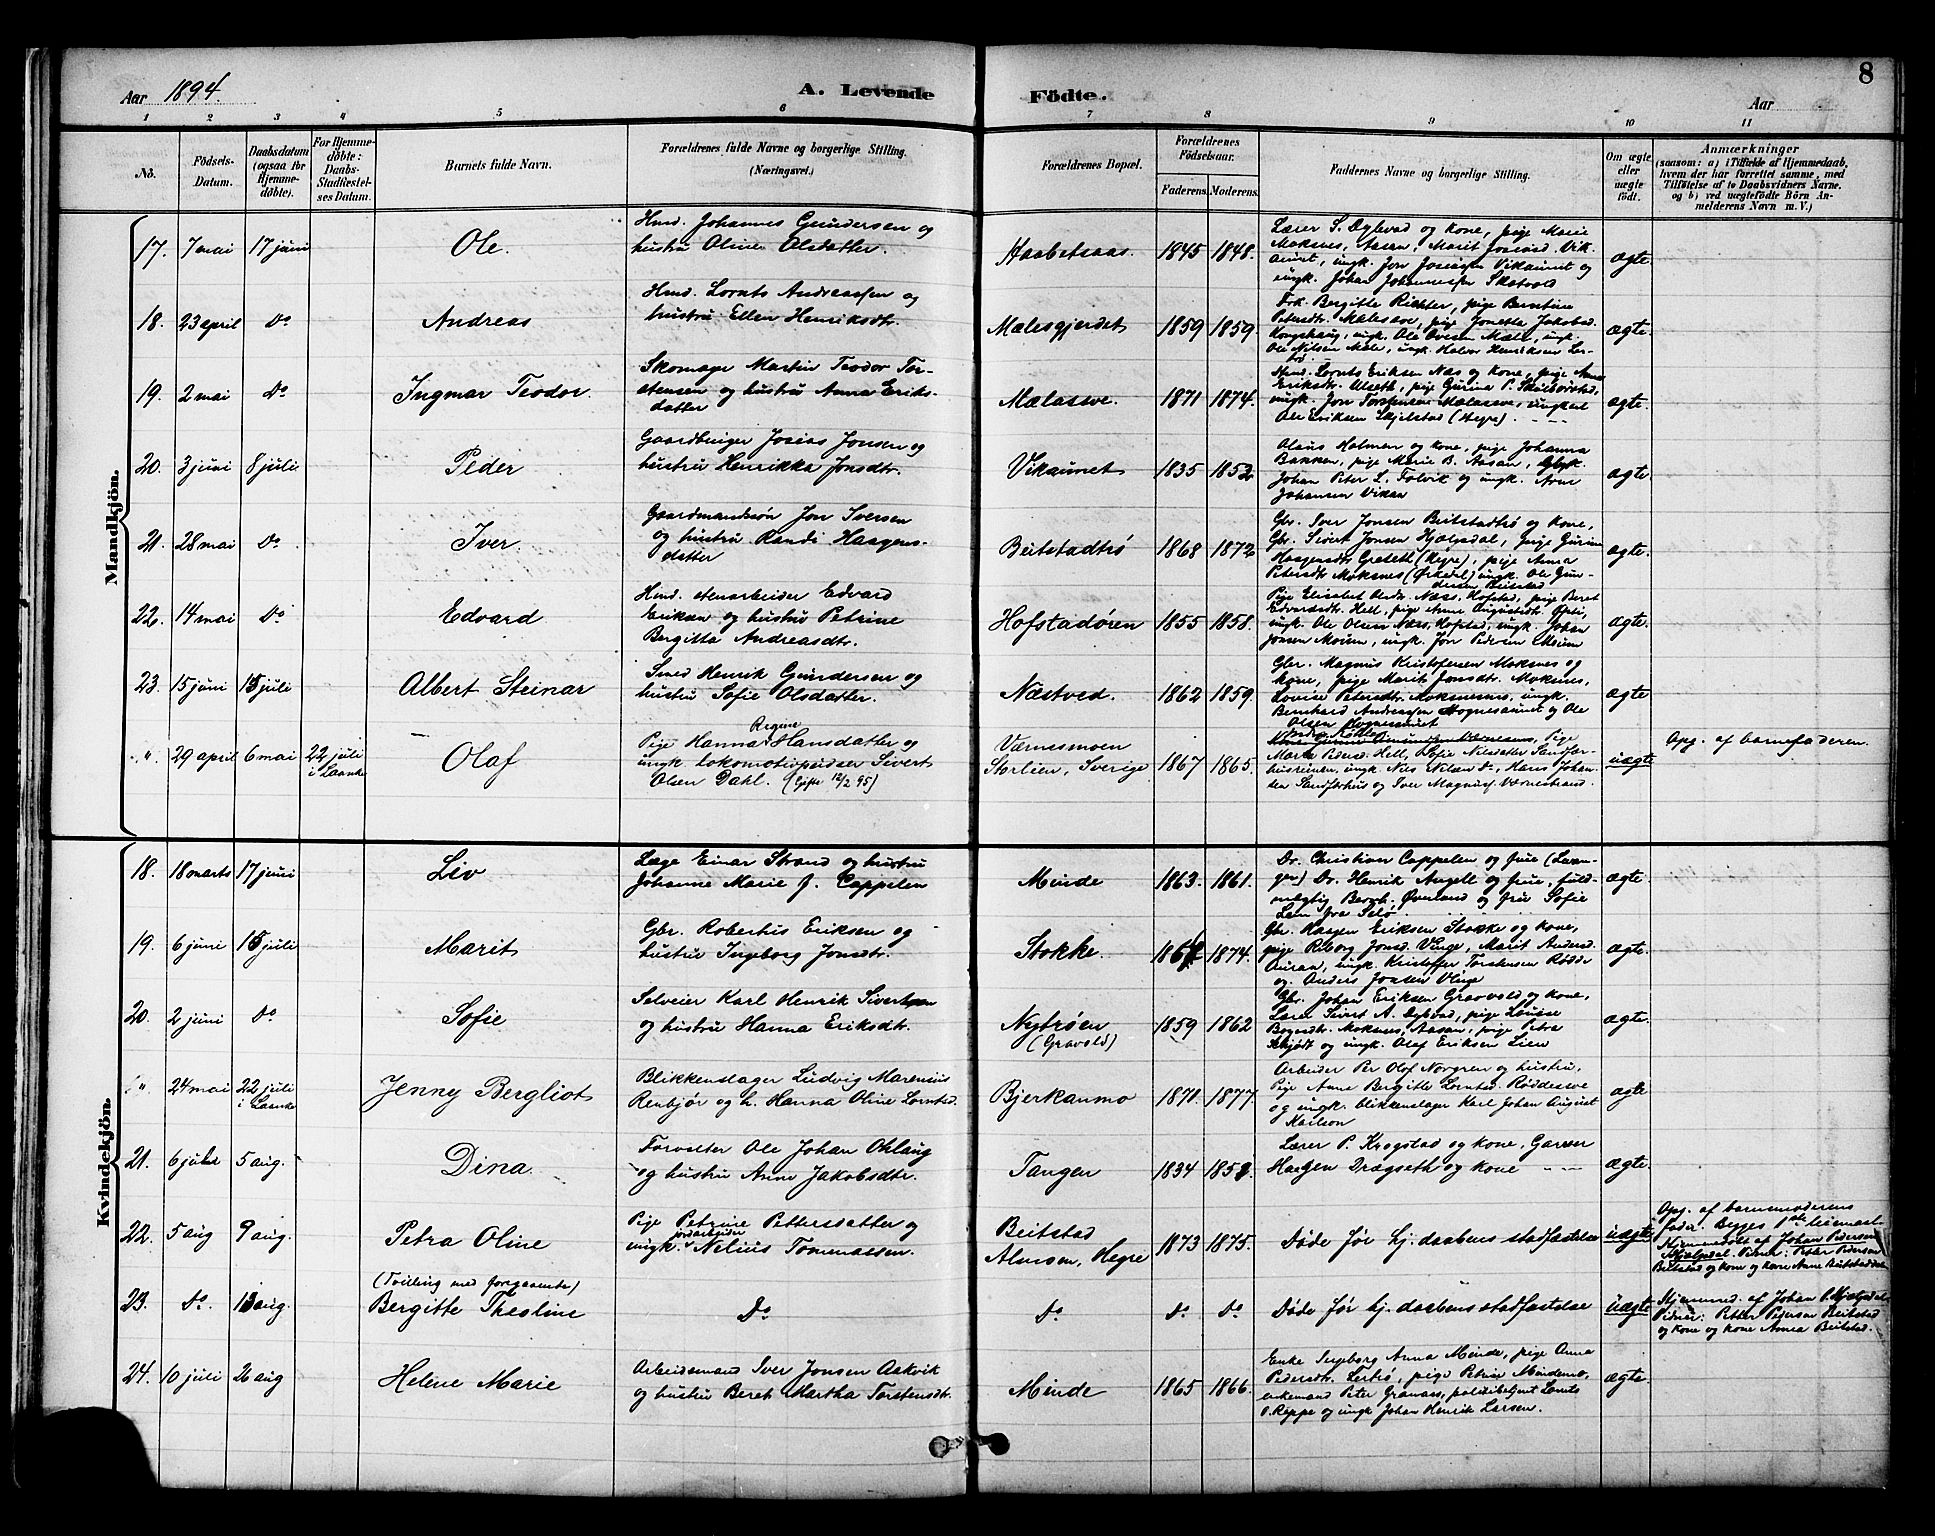 8
Aar 1894.
A. Levende Födte.
Aar
1 2 3 4 5 6 7 8 9 10 11
No.
Födsels-Datum.
Daabsdatum (ogsaa for Hjemmedöbte).
For Hjemmedöbte: Daabs-Stadfæstelses Datum.
Barnets fulde Navn.
Forældrenes fulde Navne og borgerlige Stilling.
(Næringsvei.)
Forældrenes Bopæl.
Forældrenes Födselsaar.
Faderens. Moderens.
Faddernes Navne og borgerlige Stilling.
Om ægte eller uægte födt.
Anmærkninger
(saasom: a) i Tilfælde af Hjemmedaab, hvem der har forrettet samme, med Tilföielse af to Daabsvidners Navne, og b) ved uægtefödte Börn Anmelderens Navn m. V.)
Mandkjön.
17. 7 mai 17 juni Ole.
Hmd. Johannes Gundersen og
hustru Oline Olsdatter.
Haabetsaas. 1845 1848.
Lærer S. Öglend og kone, pige Marie
Moksnes, Aasen, Marit Josiasd. Vik-
aunet, ungk. Jon Josiasen Vikaunet og
ungk. Johan Johannessen Skatvold
ægte.
18. 23 april Do Andreas
Hmd. Lornts Andreassen og
hustru Ellen Henriksdtr.
Mælesgjerdet 1859 1859
Frk. Bergitte Richter, pige Berntine
Petersdtr. Mælesøve, pige Jonetta Jakobsd.
Kongshaug, ungk. Ole Ovesen Mæle, ungk.
Ole Nilsen Mæle, ungk. Halvor Henriksen Ler-
ægte.
19. 2 mai Do Ingmar Teodor.
Skomager Martin Teodor Tor-
stensen og hustru Anna Eriks-
datter
Mælassve. 1871 1874.
Hmd. Lornts Eriksen Næs og kone, pige Anne
Eriksdtr. Ulseth, pige Gurina P. Skielstad,
ungk. Jon Torstensen Mælassve, ungkarl
Ole Eriksen Skjelstad (Hegre).
ægte.
20. 3 juni 8 juli Peder
Gaardbruger Josias Jonsen og
hustru Henrikka Jonsdtr.
Vikaunet 1835 1852
Olaus Holmen og kone, pige Johanna
Bakken, pige Marie B. Aasan,
Johan Peter L. Folvik og ungk. Arne
Johansen Vikan
ægte.
21. 28 mai Do Iver.
Gaardmandssön Jon Iversen
og hustru Randi Haagens-
datter
Beitstadtrö 1868 1872
Gbr. Iver Jonsen Beitstadtrö og kone,
Gbr. Sivert Jonsen Hjælpsdal, pige Gurine
Haagensdtr. (Hegre), pige Anna
Petersdtr. Moksnes (Örkedal) ungk. Ole Gun-
dersen Beitstad
ægte.
22. 14 mai Do Edvard
Hmd. stenarbeider Edvard
Eriksen og hustru Petrine
Bergitta Andreasdtr.
Hofstadören 1855 1858.
Pige Elisabet Næss, Hofstad, pige Beret
Edvardsdtr. Hell, pige Anne Augustsdtr.
ungk. Ole Olsen Næss, Hofstad, ungk. Johan
Jonsen Moium, ungk. Jon Pedersen
ægte.
23. 15 juni 15 juli Albert Steinar
Smed Henrik Gundersen og
hustru Sofie Olsdatter.
Næstved. 1862 1859.
Gbr. Magnus Kristofersen Moksnes og
kone, pige Marit Jonsdtr. Moksnes,
Lovise Petersdtr. Moksnesnes, ungk.
Bernhard Andreassen Hognesaunet og Ole
Olsen Hognesaunet
ægte
" 29 april 6 mai 22 juli i Laanke Olaf
Regine
Pige Hanna Hansdatter og
ungk. lokomotivpudser Sivert
Olsen Dahl. (Gifte 12/2 95)
Værnesmoen
Storlien, Sverige 1867 1865.
Pige
Marta Pedersd. Hell, Sofie Nilsdatter Sandfær-
husreinen, ungk. Nils Nilsen Do, Hans Johan-
sen Sandfærhus og Iver Magnus. Værnesstrand.
uægte
Opg. af barnefaderen.
Kvindekjön.
18. 18 marts 17 juni Liv
Læge Einar Strand og hustru
Johanne Marie J. Cappelen
Minde 1863. 1861.
Dr. Christian Cappelen og frue (Levan-
ger) Dr. Henrik Angell og frue, fuld-
mægtig Bernh. Överland og fru Sofie
Lem fra Selö
ægte.
19. 6 juni 15 juli Marit
Gbr. Robertus Eriksen og
hustru Ingeborg Jonsdtr.
Stokke. 1874.
Gbr. Haagen Eriksen Stokke og kone,
pige Riborg Jonsd. Vinge, Marit Andersd.
Auran, ungk. Kristoffer Torstensen Rödde
og Anders Jonsen Vinge
ægte.
20. 2 juni Do Sofie
Selveier Karl Henrik Sivertsen
og hustru Hanna Eriksdtr.
Nytröen
(Gravold) 1859 1862
Gbr. Johan Eriksen Gravold og kone,
Lærer Sivert A. Öglend, pige Louise
Bogensdtr. Moksnes, Aasan, pige Petra
Schjödt og ungk. Olaf Eriksen Lien
ægte.
" 24 mai 22 juli i Laanke Jenny Bergliot
Blikkenslager Ludvig Marenius
Renbjör og h. Hanna Oline Lorntsd.
Bjerkanmo 1871. 1877.
Arbeider Per Olof Norgren og hustru,
Pige Anne Bergitte Lorntsd. Röddesve
og ungk. blikkenslager Karl Johan August
Karlson
ægte
21. 6 juli 5 aug. Dina
Forvalter Ole Johan Öhlaug
og hustru Anne Jakobsdtr.
Tangen 1834
Lærer P. Krogstad og kone, Garver
Haagen Drægseth og kone
ægte.
22. 5 aug 9 aug. Petra Oline
Pige Petrine Pettersdatter og
jordarbeider
ungk. Nelius Tommassen.
Beitstad
Almoen, Hegre 1873 1875.
Döde för hj. daabens stadfæstelse
uægte
Opg. af barnemoderens
fader. Begges 1ste leiermaal.
Hjemmedöbt af Johan Pedersen
Hjælpsdal. Vidner: Peter Pedersen
Beitstad og kone og kone Anne Beitstaddal
23. Do. 13 aug.
(Tvilling med foregaaende)
Bergitte Theoline
Do Do Do Do
Döde för hj. daabens stadfæstelse
uægte
Hjemmed. af Johan P. Hjælpsdal
Vidner: Petter Pedersen Beitstad
og kone og kone Annea Beitstad.
24. 10 juli 26 aug Helene Marie
Arbeidsmand Iver Jonsen Aakvik
og hustru Beret Martha Torstensdtr.
Minde 1865 1866.
Enke Ingeborg Anna Minde, pige Anna
Pedersdtr. Lertrö, pige Petrine Mindemo,
enkemand Peter Granaas, politibetjent Lornts
O. Reppe og ungk. Johan Henrik Larsen.
ægte.